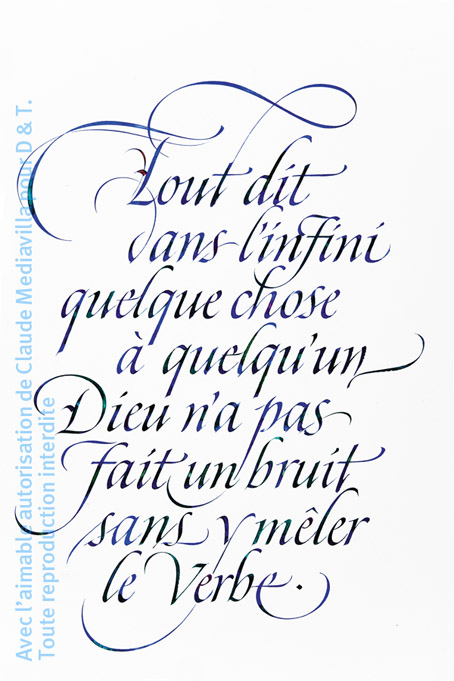 Tout dit
dans l'infini
quelque chose
à quelqu'un
Dieu n'a pas
fait un bruit
sans y mêler
le Verbe.
Avec l'aimable autorisation de Claude Mediavilla pour D & T.
Toute reproduction interdite